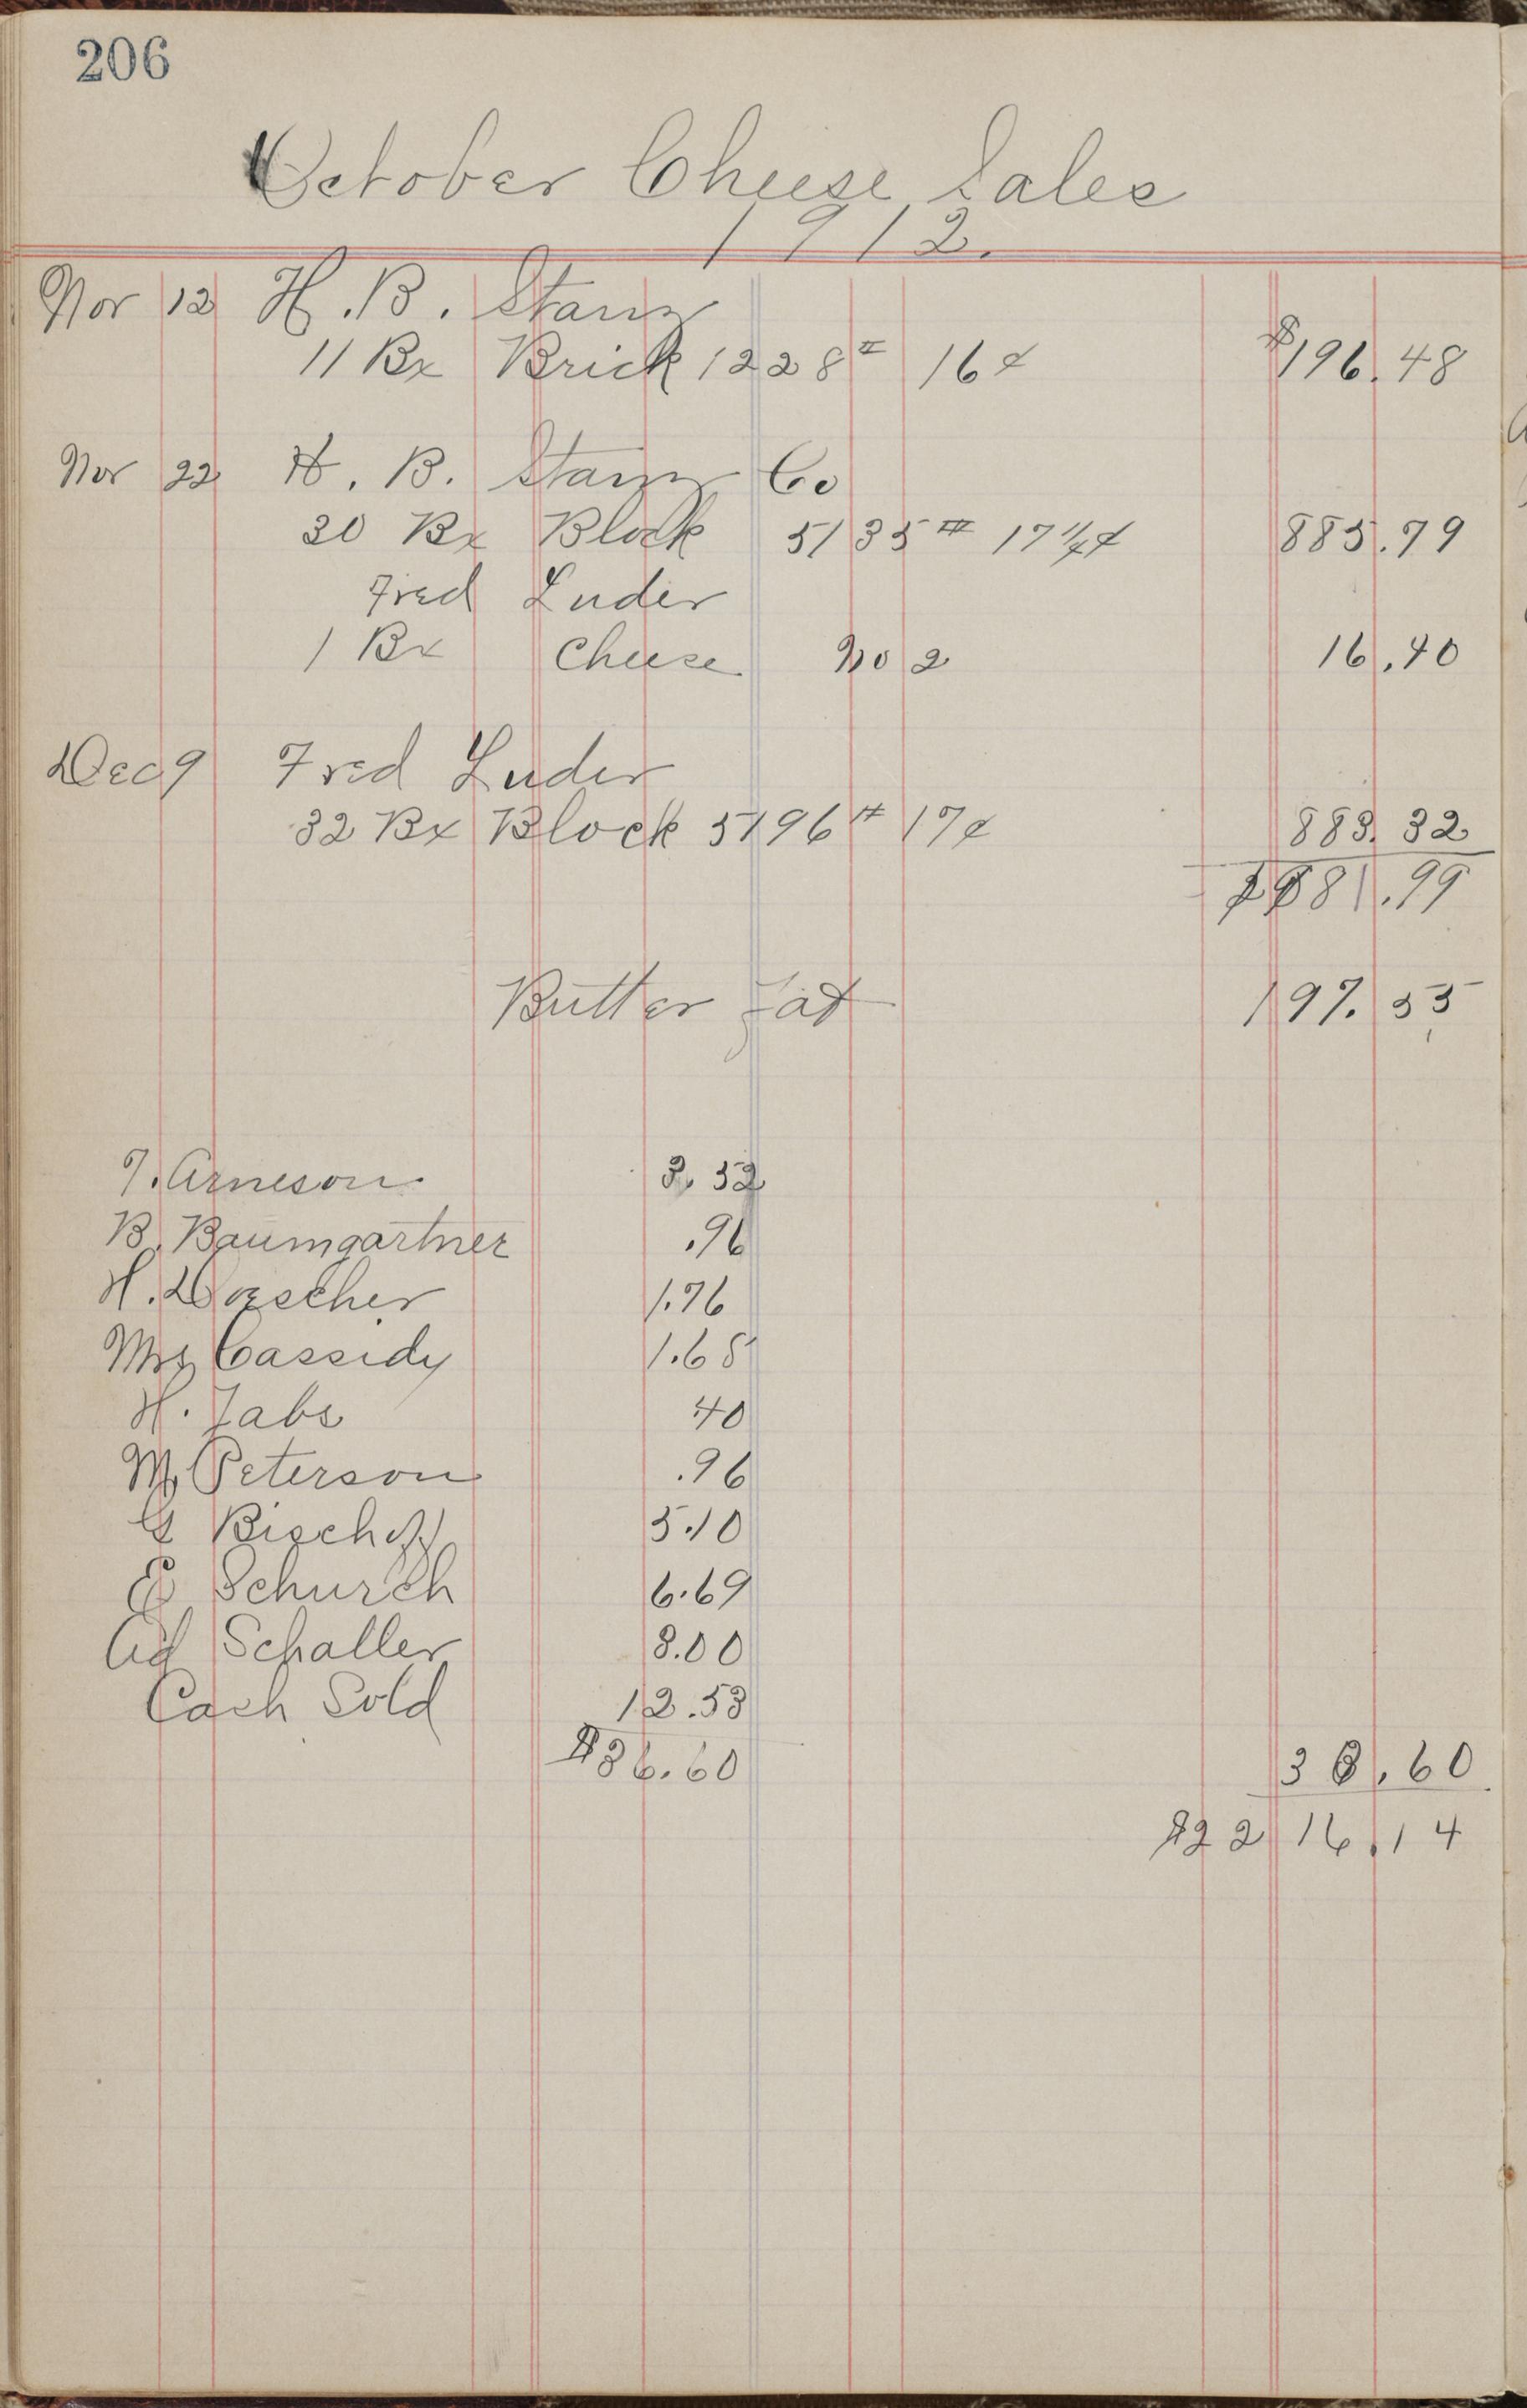 206
October Cheese Sales
1912.
Nov 12 H. B. Stanz
11 Bx Brick 1228# 16¢ $196.48
Nov 22 H. B. Stanz Co
30 Bx Block 5135# 17 1/4¢ 885.79
Fred Luder
1 Bx Cheese No 2 16.40
Dec 9 Fred Luder
32 Bx Block 5196# 17¢ 883.32
1981.99
Butter fat 197.55
T. Arneson 3.52
B. Baumgartner .96
H. Doescher 1.76
Mrs Cassidy 1.68
H. Jabs 40
M. Peterson .96
G Bischoff 5.10
E Schurch 6.69
Ad Schaller 3.00
Cash Sold 12.53
$36.60 36.60
$2216.14